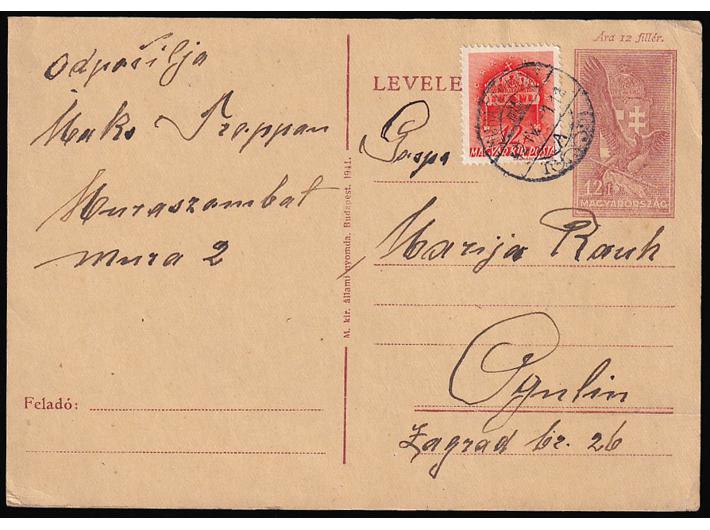 Ára 12 fillér.
Odpošilja
Maks Troppan
Muraszombat
Mura 2
LEVELE
MAGYAR KIR. POSTA
12f
MAGYARORSZÁG
Gospa
Marija Rauh
Ogulin
Zagrad br. 26
Feladó:
M. kir. állami nyomda, Budapest. 1941.